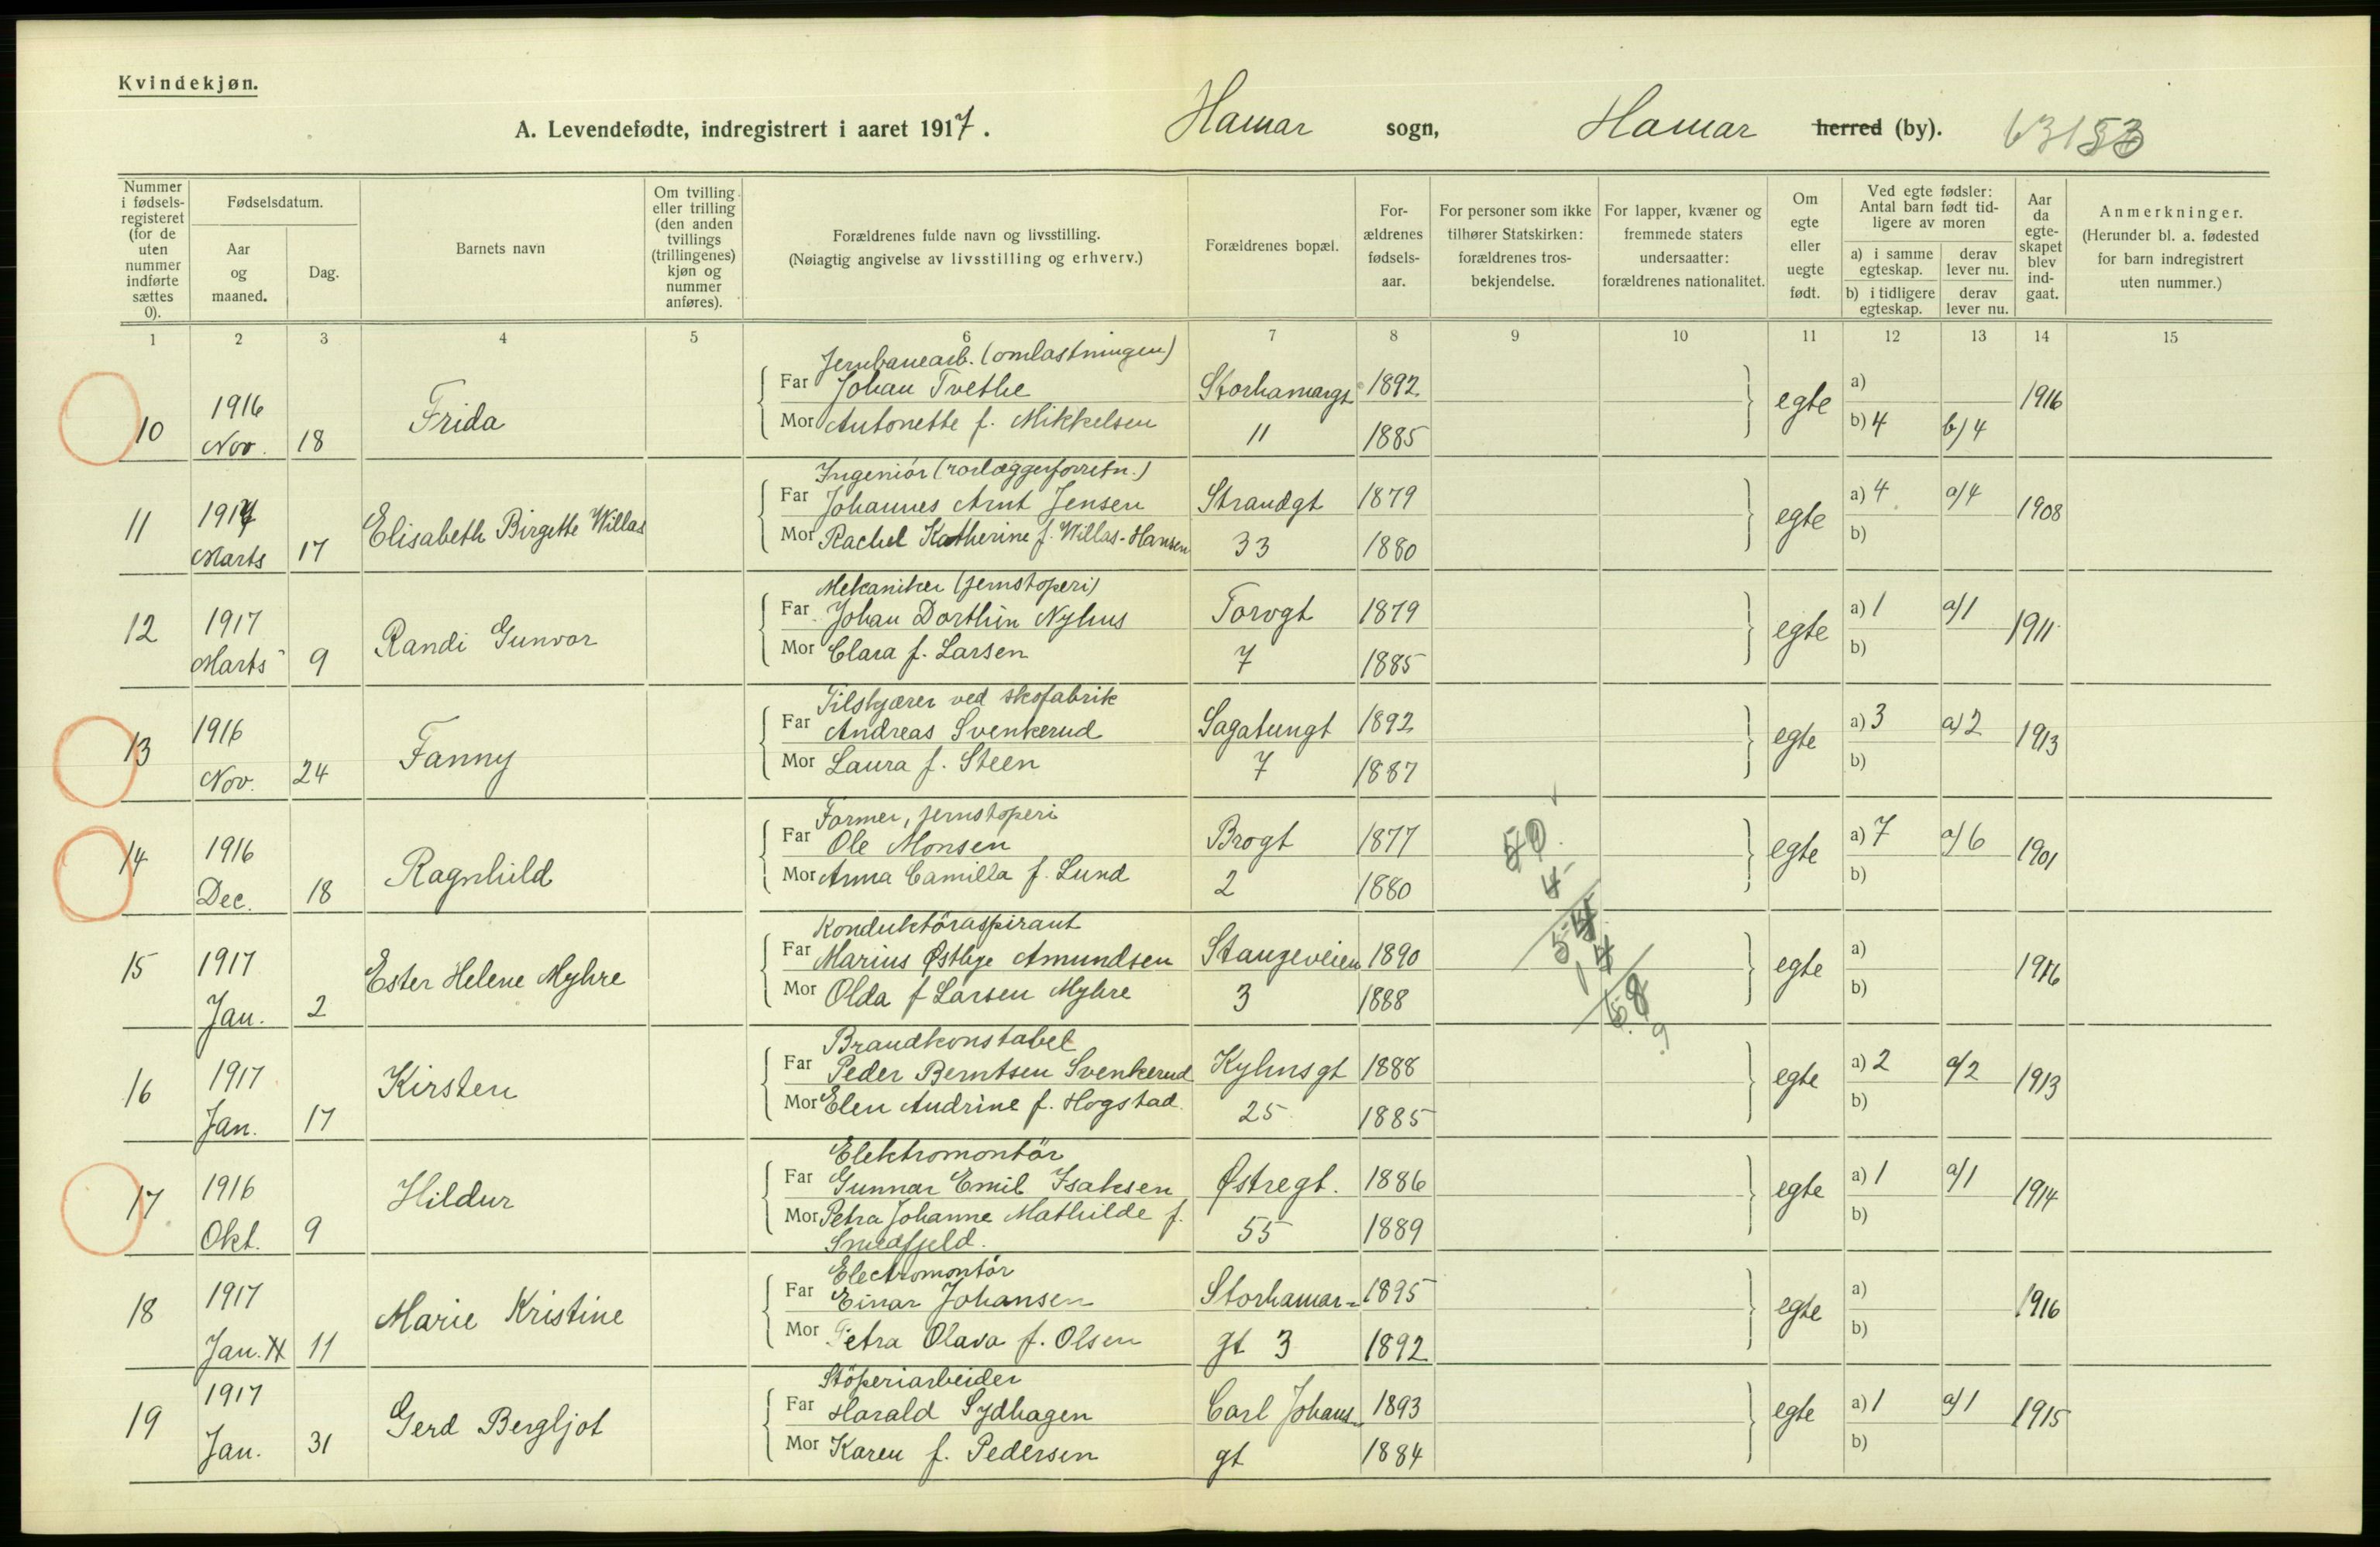 Kvindekjøn.
A. Levendefødte, indregistrert i aaret 1917. Hamar sogn, Hamar herred (by).
Nummer i fødselsregisteret (for de uten nummer indførte sættes 0).
Fødselsdatum.
Aar og maaned.
Dag.
Barnets navn
Om tvilling eller trilling (den anden tvillings (trillingenes) kjøn og nummer anføres).
Forældrenes fulde navn og livsstilling.
(Nøiagtig angivelse av livsstilling og erhverv.)
Forældrenes bopæl.
Forældrenes fødselsaar.
For personer som ikke tilhører Statskirken: forældrenes trosbekjendelse.
For lapper, kvæner og fremmede staters undersaatter: forældrenes nationalitet.
Om egte eller uegte født.
Ved egte fødsler: Antal barn født tidligere av moren
a) i samme egteskap.
derav lever nu.
b) i tidligere egteskap.
derav lever nu.
Aar da egteskapet blev indgaat.
Anmerkninger.
(Herunder bl. a. fødested for barn indregistrert uten nummer.)
1 2 3 4 5 6 7 8 9 10 11 12 13 14 15
Jernbanearb. (omlastningen)
10 1916 Nov. 18 Frida
Far Johan Tvethe Storhamargt 1892 egte a) 1916
Mor Antonette f. Mikkelsen 11 1885 b) 4 b/4
Ingeniör (rörlæggerforretn.)
11 1917 Marts 17 Elisabeth Birgitte Willas
Far Johannes Arnt Jensen Strandgt 1879 egte a) 4 a/4 1908
Mor Rachel Katherine f. Willas-Hansen 33 1880 b)
Mekaniker (jernstøperi)
12 1917 Marts 9 Randi Gunvor
Far Johan Dorthin Nyhus Torvgt 1879 egte a) 1 a/1 1911
Mor Clara f. Larsen 7 1885 b)
Tilskjærer ved skofabrik
13 1916 Nov. 24 Fanny
Far Andreas Svenkerud Sagatungt 1892 egte a) 3 a/2 1913
Mor Laura f. Steen 7 1887 b)
Former, jernstøperi
14 1916 Dec. 18 Ragnhild
Far Ole Monsen Brogt 1877 egte a) 7 a/6 1901
Mor Anna Camilla f. Lund 2 1880 b)
Konduktöraspirant
15 1917 Jan. 2 Ester Helene Myhre
Far Marius Østbye Amundsen Stangeveien 1890 egte a) 1916
Mor Olda f Larsen Myhre 3 1888 b)
Brandkonstabel
16 1917 Jan. 17 Kirsten
Far Peder Berntsen Svenkerud Kyhnsgt 1888 egte a) 2 a/2 1913
Mor Elen Andrine f. Hogstad. 25 1885 b)
Elektromontör
17 1916 Okt. 9 Hildur
Far Gunnar Emil Isaksen Østregt. 1886 egte a) 1 a/1 1914
Mor Petra Johanne Mathilde f. 55 1889 b)
Smedfjeld.
Electromontör
18 1917 Jan. 11 Marie Kristine
Far Einar Johansen Storhamar- 1895 egte a) 1916
Mor Petra Olava f. Olsen gt 3 1892 b)
Stöperiarbeider
19 1917 Jan. 31 Gerd Bergljot
Far Harald Sydhagen Carl Johans 1893 egte a) 1 a/1 1915
Mor Karen f. Pedersen gt 1884 b)